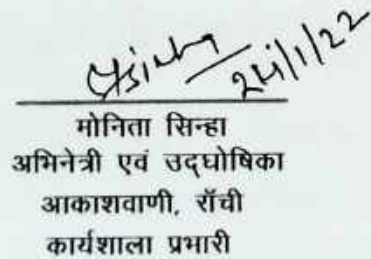 मोनिता सिन्हा
अभिनेत्री एवं उद्घोषिका
आकाशवाणी, राँची
कार्यशाला प्रभारी